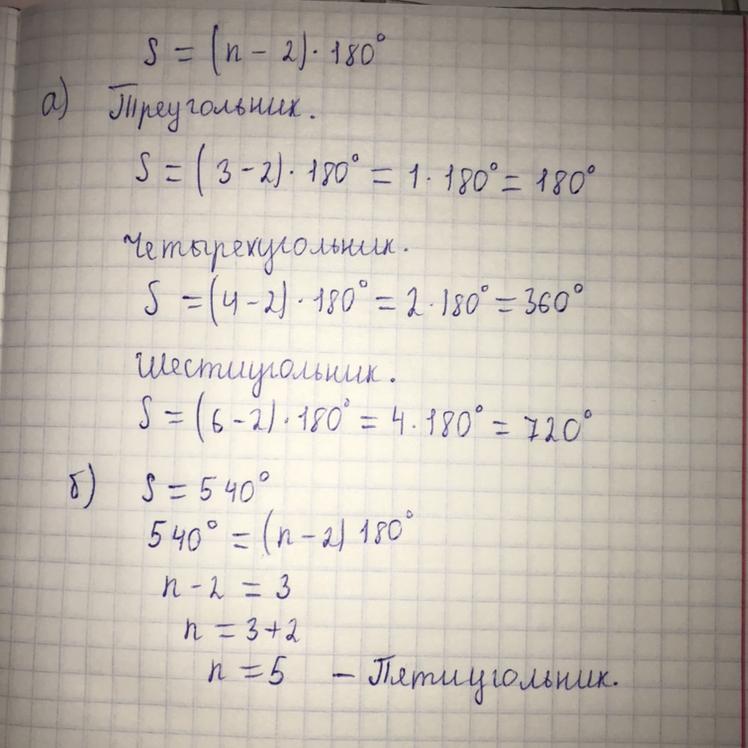 S = (n - 2) · 180°
а) Треугольник.
S = (3 - 2) · 180° = 1 · 180° = 180°
Четырехугольник.
S = (4 - 2) · 180° = 2 · 180° = 360°
Шестиугольник.
S = (6 - 2) · 180° = 4 · 180° = 720°
б) S = 540°
540° = (n - 2) 180°
n - 2 = 3
n = 3 + 2
n = 5 - Пятиугольник.